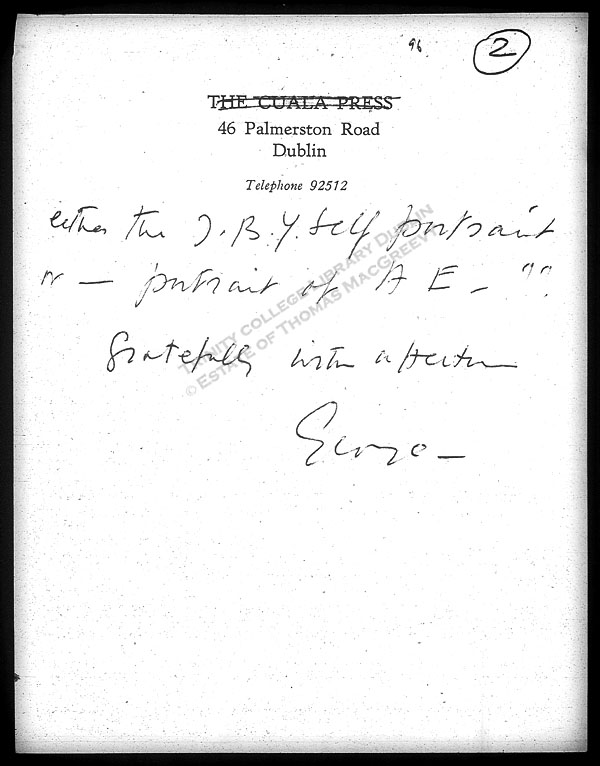 96 2
THE CUALA PRESS
46 Palmerston Road
Dublin
Telephone 92512
either the J.B.Y. self portrait
or — portrait of A E – "".
TRINITY COLLEGE LIBRARY DUBLIN
© ESTATE OF THOMAS MACGREEVY
Gratefully with affection
George –